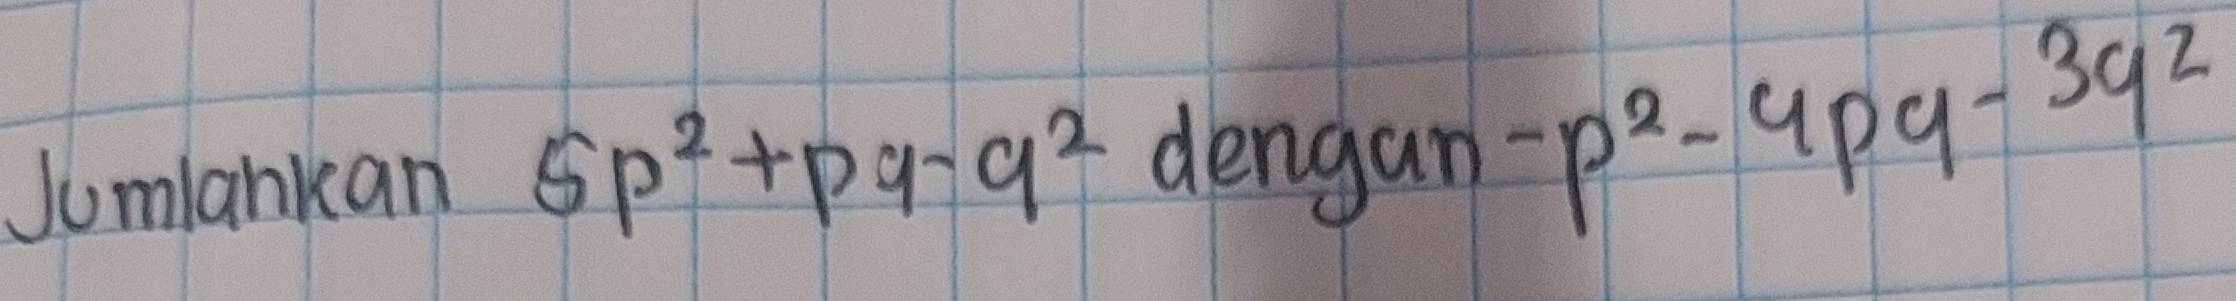 Jumlahkan 5p² + pq - q² dengan -p² - 4pq - 3q²